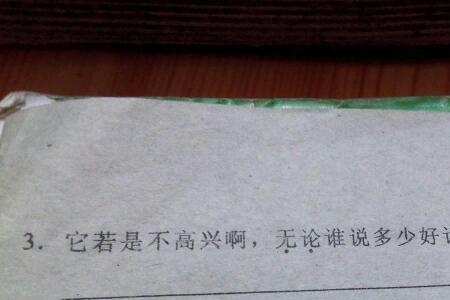 3. 它若是不高兴啊，无论谁说多少好